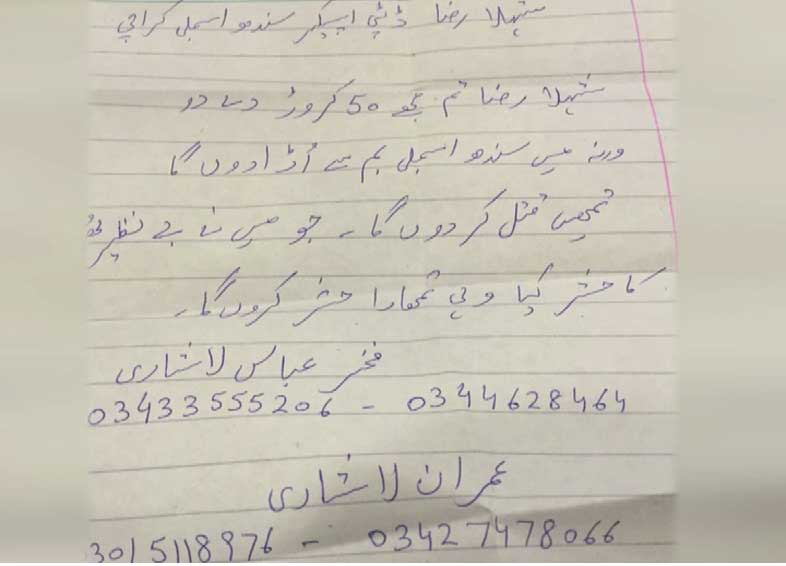 شہلا رضا ڈپٹی اسپیکر سندھ اسمبلی کراچی
شہلا رضا تم مجھے 50 کروڑ دے دو
ورنہ میں سندھ اسمبلی بم سے اُڑا دوں گا
تمھیں قتل کر دوں گا۔ جو میں نے بے نظیر بھٹو
کا حشر کیا وہی تمھارا حشر کروں گا۔
فخر عباس لاشاری
03433555206 - 0344628464
عمران لاشاری
3015118976 - 03427478066